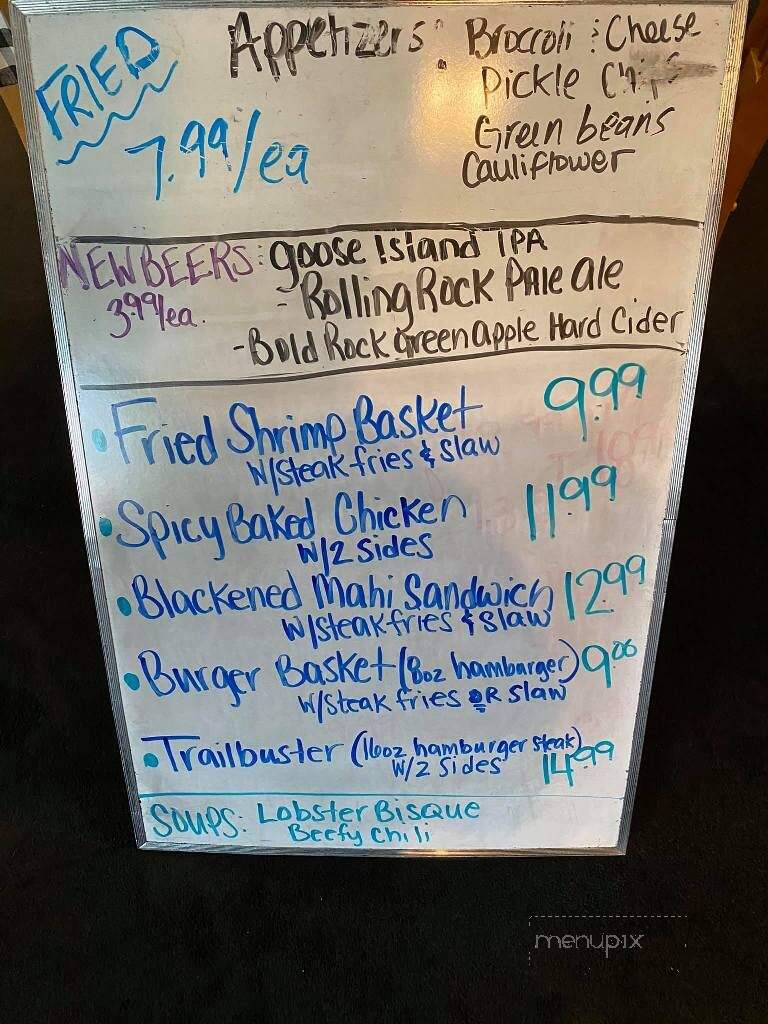 FRIED
Appetizers: Broccoli & Cheese
Pickle Chips
7.99/ea
Green beans
Cauliflower
NEW BEERS: goose Island IPA
3.99/ea.
- Rolling Rock Pale Ale
- Bold Rock Green apple Hard Cider
• Fried Shrimp Basket 9.99
W/steak fries & Slaw
• Spicy Baked Chicken 11.99
W/2 Sides
• Blackened Mahi Sandwich 12.99
W/steak fries & Slaw
• Burger Basket (8oz hamburger)
W/Steak fries OR Slaw
• Trailbuster (16oz hamburger steak)
W/2 Sides 14.99
SOUPS: Lobster Bisque
Beefy Chili
menupix